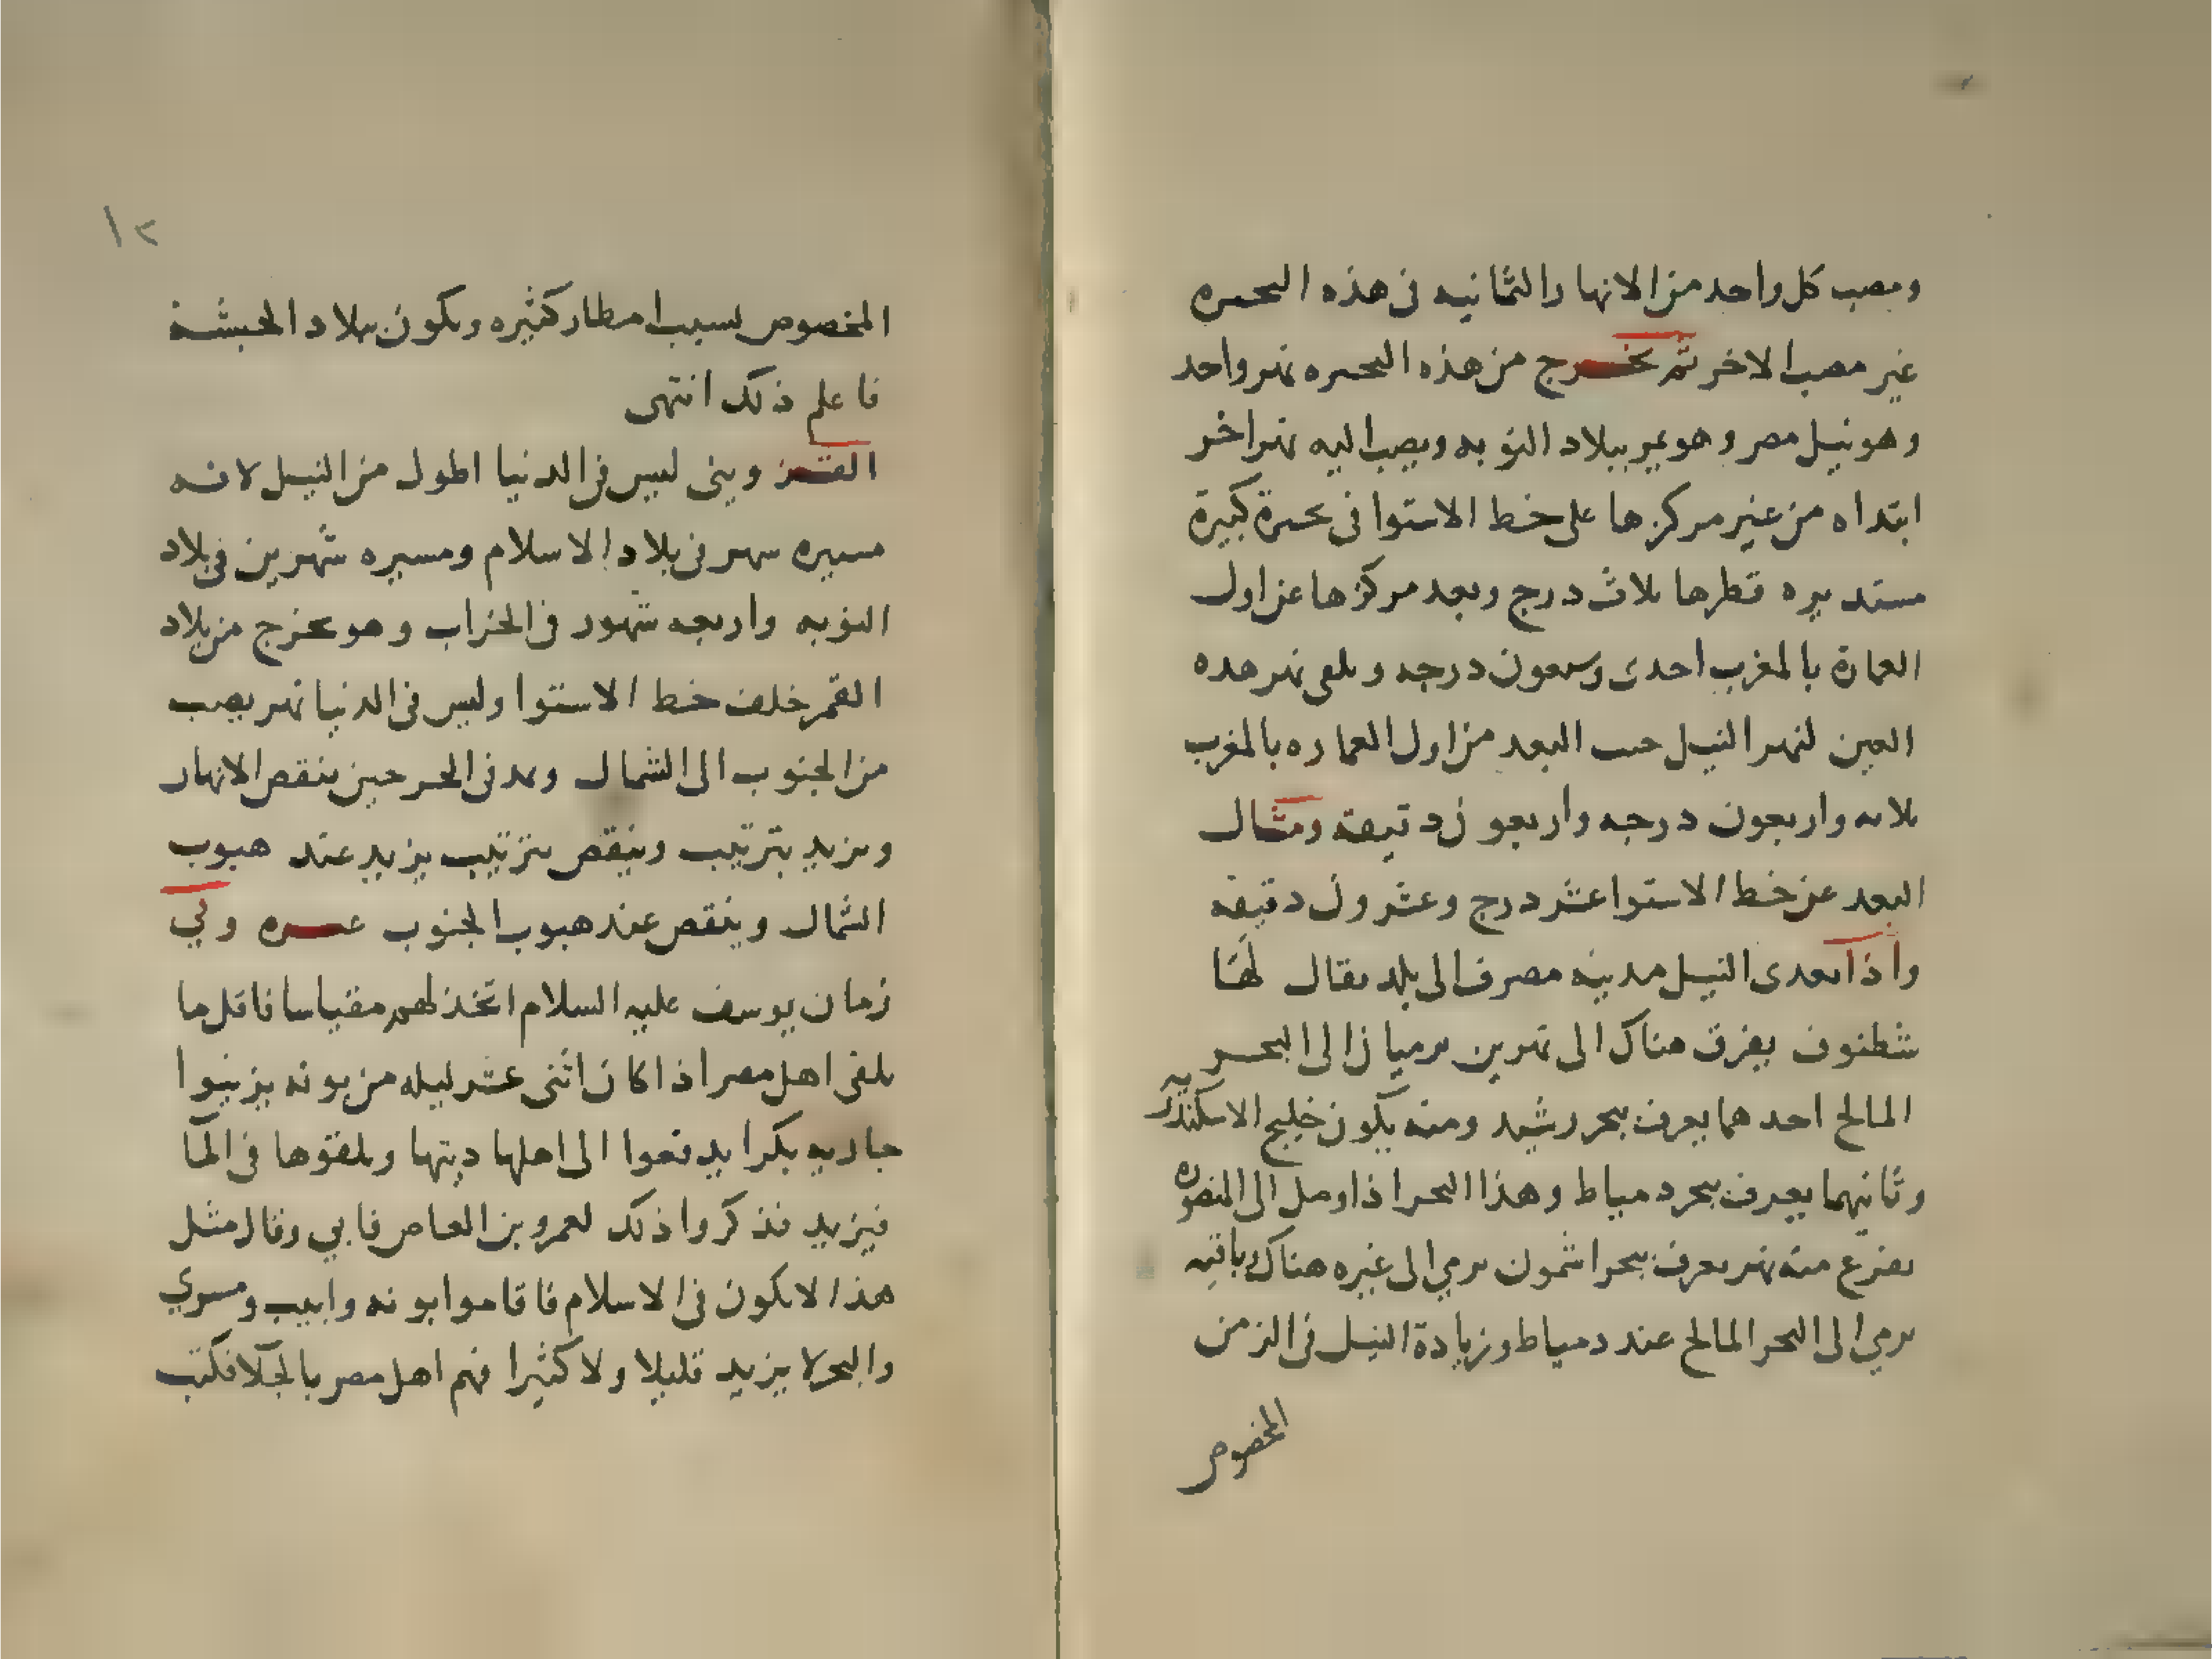 ومصب كل واحد من الانهار الثمانيه فى هذه البحيره
غير مصب الاخر ثم يخرج من هذه البحيره نهر واحد
وهو نيل مصر وهو يمر ببلاد النوبه ويصب اليه نهر اخر
ابتداه من غير مركزها على خط الاستوا فى بحيرة كبيرة
مستديره قطرها ثلاث درج وبعد مركزها عن اول
العمارة بالمغرب احدى وسبعون درجه وبلقى نهر هده
العين لنهر النيل حيث البعد من اول العماره بالمغرب
ثلاثه واربعون درجه واربعون دقيقه ومثال
البعد عن خط الاستوا عشر درج وعشرون دقيقه
واذا تعدى النيل مدينه مصر فالى بلد يقال لها
شطنوف يفرق هناك الى نهرين يرميان الى البحر
المالح احدهما يعرف ببحر رشيد ومنه يكون خليج الاسكندريه
وثانيهما يعرف ببحر دمياط وهذا البحر اذا وصل الى المنصوره
يفرع منه نهر يعرف ببحر اشمون يرمي الى غيره هناك وباقيه
يرمي الى البحر المالح عند دمياط وزيادة النيل فى الزمن
المخصوص
١٢
المخصوص لسبب امطار كثيره وتكون ببلاد الحبشة
فاعلم ذلك انتهى
القمر ويني ليس فى الدنيا اطول من النيل لانه
مسيره شهر فى بلاد الاسلام ومسيره شهرين فى بلاد
النوبه واربعه شهور فى الخراب وهو يخرج من بلاد
القمر خلف خط الاستوا وليس فى الدنيا نهر يصب
من الجنوب الى الشمال ويمد فى الحر حين ينقص الانهار
ويزيد بترتيب وينقص بترتيب يزيد عند هبوب
الشمال وينقص عند هبوب الجنوب غيره وفي
زمان يوسف عليه السلام اتخذ لهم مقياسا فاقل ما
يلقى اهل مصر اذا كان اثنى عشر ليله من بونه يزينوا
جاريه بكرا يدفعوا الى اهلها ديتها ويلقوها فى الما
فيزيد فذكروا ذلك لعمرو بن العاص فابي وقال مثل
هذا لا يكون فى الاسلام فاقاموا بونه وابيب ومسري
والبحر لا يزيد قليلا ولا كثيرا فهم اهل مصر بالجلا فكتب